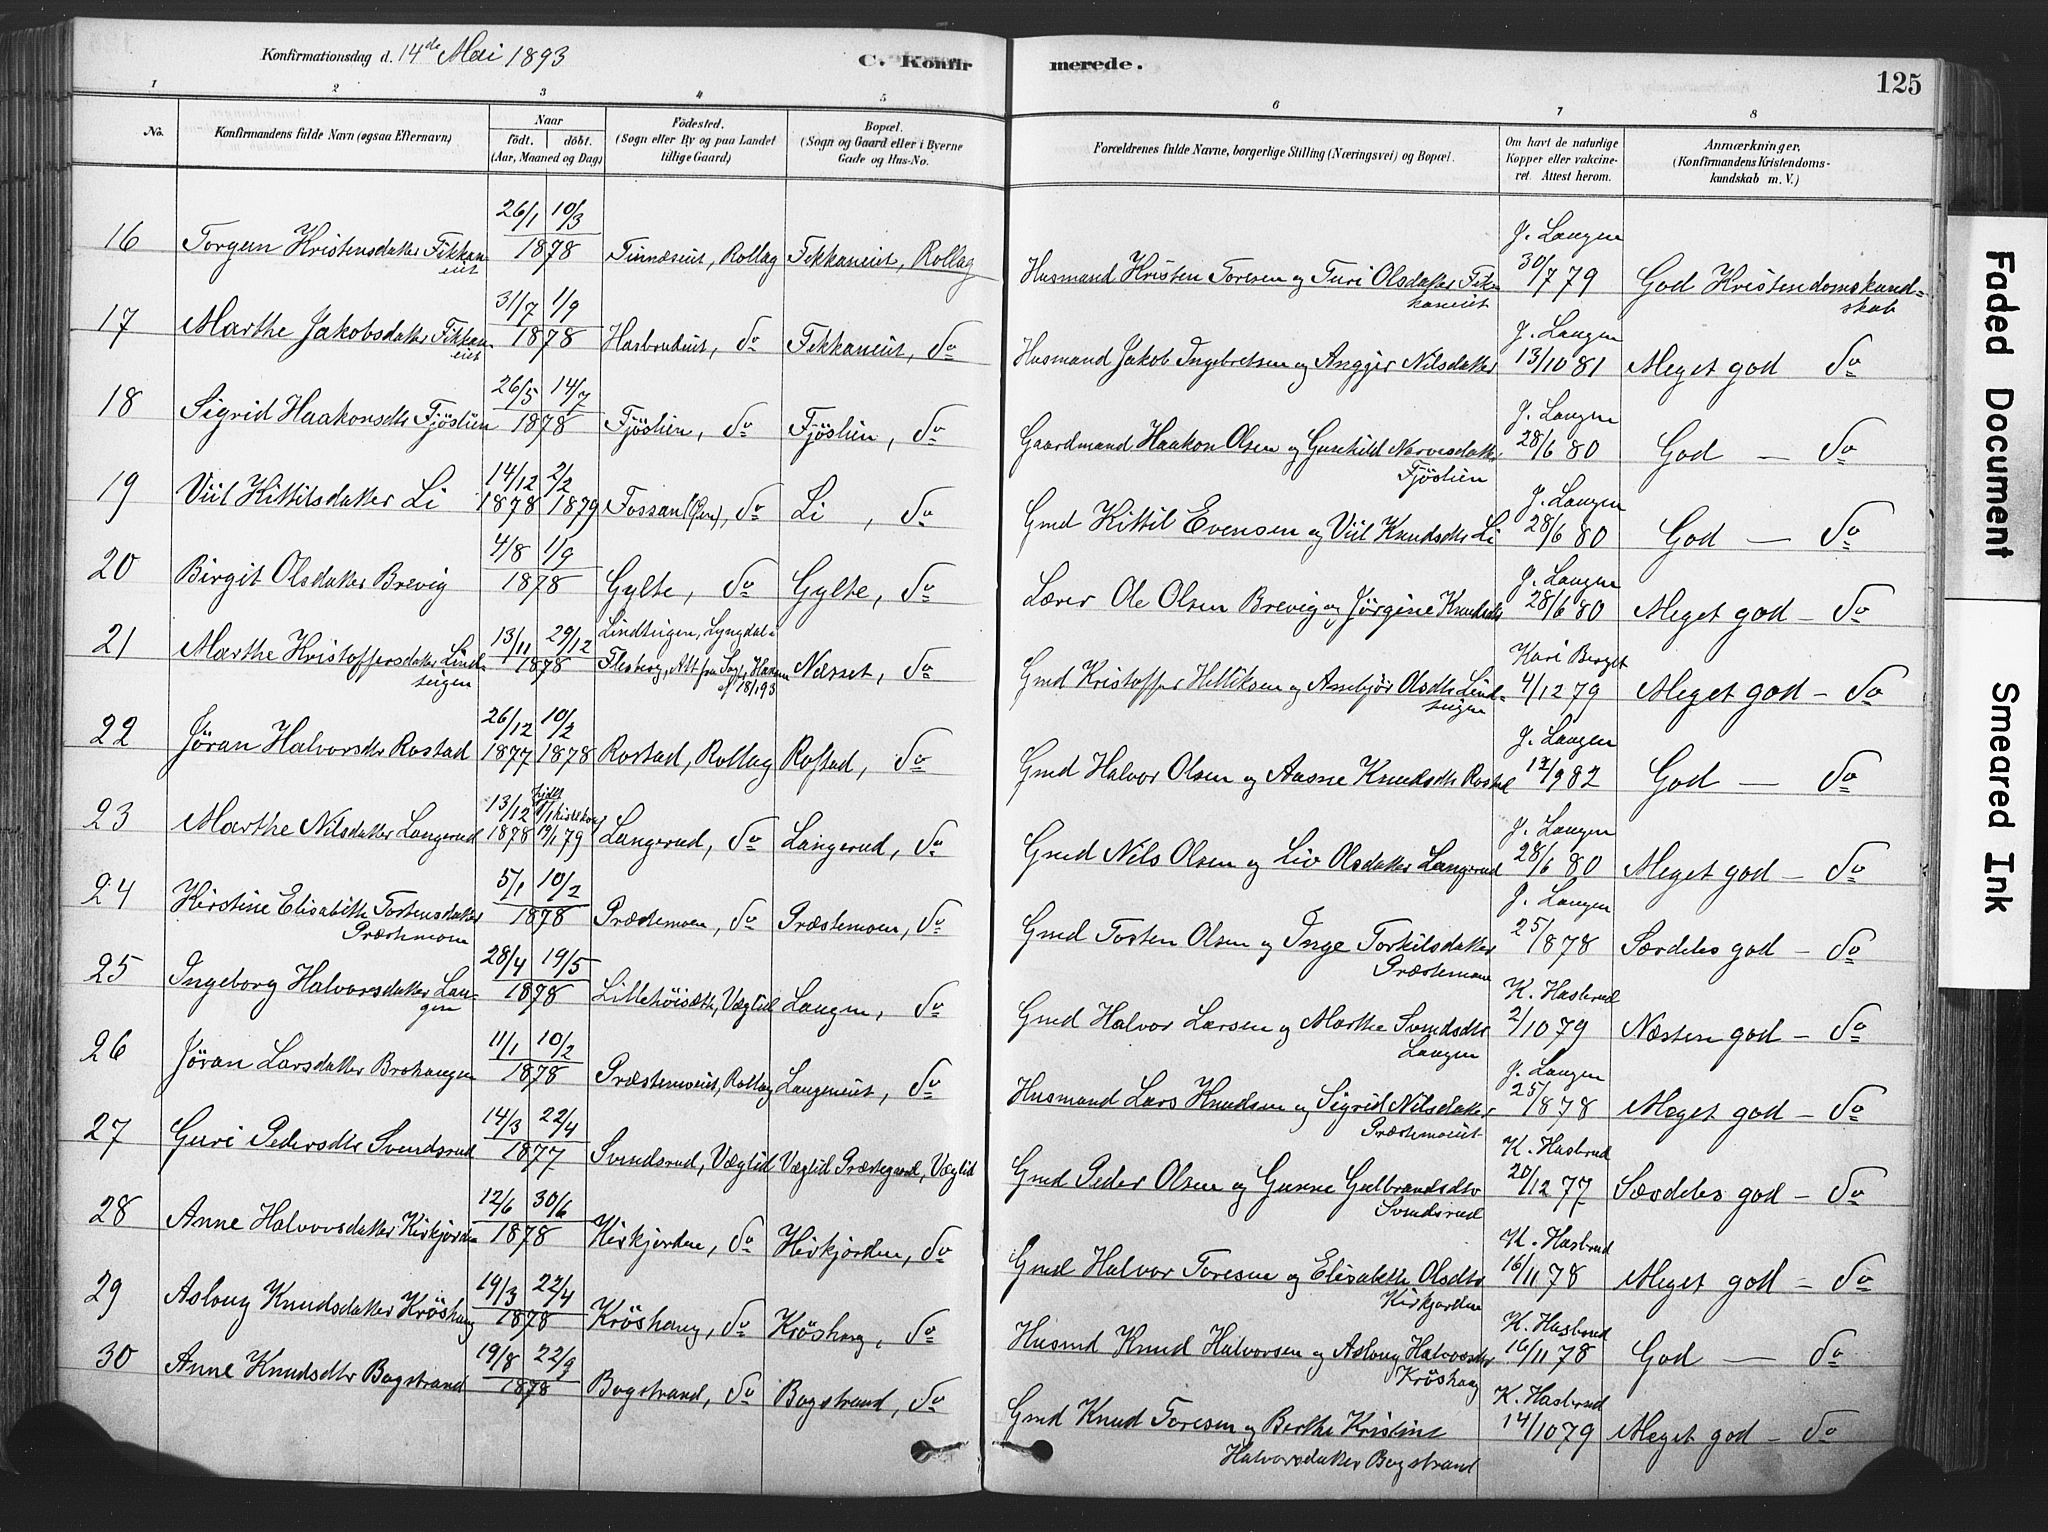 Konfirmationsdag d. 14de Mai 1893
C. Konfir merede.
125
1 2 3 4 5 6 7 8
No.
Konfirmandens fulde Navn (ogsaa Efternavn)
Naar
Födt. döbt.
(Aar, Maaned og Dag)
Födested.
(Sogn eller By og paa Landet
tillige Gaard)
Bopæl.
(Sogn og Gaard eller i Byerne
Gade og Hus-No.
Forældrenes fulde Navne, borgerlige Stilling (Næringsvei) og Bopæl.
Om havt de naturlige
Kopper eller vakcine-
ret. Attest herom.
Anmærkninger.
(Konfirmandens Kristendoms-
kundskab m. V.)
16 Torgun Kristensdatter Fekkan-
eiet
26/1 10/3
1878
Tinnæseiet, Rollag Fekkaneiet, Rollag
Husmand Kristen Toresen og Turi Olsdatter Fek-
kaneiet
J. Laugen
30/7 79
God Kristendomskund=
skab
17 Marthe Jakobsdatter Fekkan-
eiet
31/7 1/9
1878
Hasbrudeiet, Do Fekkaneiet, Do
Husmand Jakob Ingebretsen og Angjer Nilsdatter
J. Laugen
13/10 81
Meget god Do
18 Sigrid Haakonsdtr Fjöslien
26/5 14/7
1878
Fjöslien, Do Fjöslien, Do
Gaardmand Haakon Olsen og Gunhild Narvesdatter
Fjöslien
J. Laugen
28/6 80
God — Do
19 Viil Kittilsdatter Li
14/12 2/2
1878 1879
Fossan, Do Li, Do
Gmd Kittil Evensen og Viil Knudsdtr Li
J. Laugen
28/6 80
God — Do
20 Birgit Olsdatter Brevig
4/8 1/9
1878
Gylte, Do Gylte, Do
Lærer Ole Olsen Brevig og Jörgine Knudsdtr
J. Laugen
28/6 80
Meget god — Do
21 Marthe Kristoffersdatter Lind-
seigen
13/11 29/12
1878
Lindseigen, Lyngdal i
Flesberg, Att fra Sogn. Hansen
af 18/1 93
Næsset, Do
Gmd Kristoffer Helliksen og Annbjör Olsdtr Lind-
seigen
Kari Berget
4/12 79
Meget god — Do
22 Jöran Halvorsdtr Rostad
26/12 10/2
1877 1878
Rostad, Rollag Rostad, Do
Gmd Halvor Olsen og Aasne Knudsdtr Rostad
J. Laugen
12/9 82
God — Do
23 Marthe Nilsdatter Langerud
13/12
1878 19/1 79
Langerud, Do Langerud, Do
Gmd Nils Olsen og Liv Olsdatter Langerud
J. Laugen
28/6 80
Meget god — Do
24 Kirstine Elisabeth Tostensdatter
Præstemoen
5/1 10/2
1878
Præstemoen, Do Præstemoen, Do
Gmd Tosten Olsen og Inge Torkilsdatter
Præstemoen
J. Laugen
25/8 78
Særdeles god — Do
25 Ingeborg Halvorsdatter Lau-
gen
28/4 19/5
1878
Lillehöisæth, Væglid Laugen, Do
Gmd Halvor Larsen og Marthe Svendsdtr
Laugen
K. Hasbrud
2/10 79
Næsten god — Do
26 Jöran Larsdatter Brohaugen
11/1 10/2
1878
Præstemoeiet, Rollag Laugeneiet, Do
Husmand Lars Knudsen og Sigrid Nilsdatter
Præstemoeiet
J. Laugen
25/8 78
Meget god — Do
27 Guri Pedersdtr Svendsrud
14/3 22/4
1877
Svendsrud, Væglid Væglid Præstegaard, Væglid
Gmd Peder Olsen og Gunne Gulbrandsdtr
Svendsrud
K. Hasbrud
20/12 77
Særdeles god — Do
28 Anne Halvorsdatter Kirkjorden
12/6 30/6
1878
Kirkjorden, Do Kirkjorden, Do
Gmd Halvor Toresen og Elisabeth Olsdtr
Kirkjorden
K. Hasbrud
16/11 78
Meget god — Do
29 Aslaug Knudsdatter Kröshaug
19/3 22/4
1878
Kröshaug, Do Kröshaug, Do
Husmd Knud Halvorsen og Aslaug Halvorsdtr
Kröshaug
K. Hasbrud
16/11 78
God — Do
30 Anne Knudsdtr Bogstrand
19/8 22/9
1878
Bogstrand, Do Bogstrand, Do
Gmd Knud Toresen og Berthe Kristine
Halvorsdatter Bogstrand
K. Hasbrud
14/10 79
Meget god — Do
Faded Document
Smeared Ink